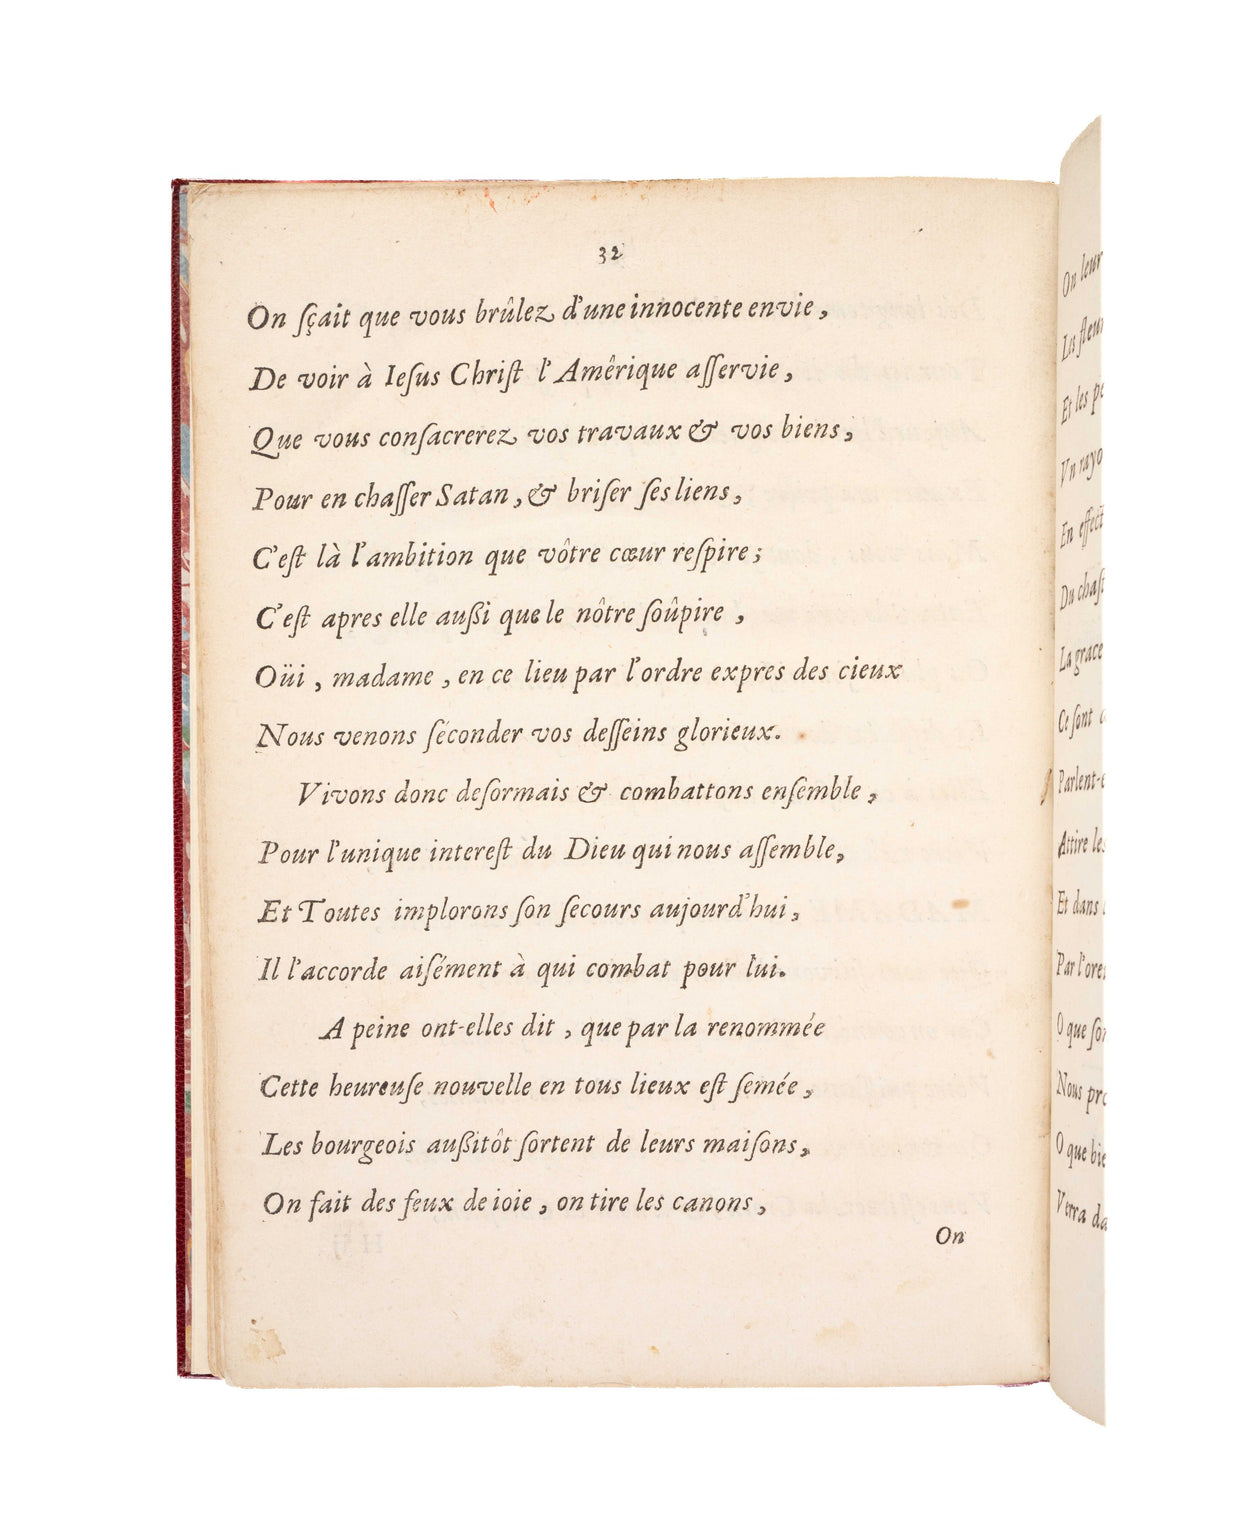 32
On sçait que vous brûlez d'une innocente envie,
De voir à Iesus Christ l'Amêrique asservie,
Que vous consacrerez vos travaux & vos biens,
Pour en chasser Satan, & briser ses liens,
C'est là l'ambition que vôtre cœur respire;
C'est apres elle aussi que le nôtre soûpire,
Oüi, madame, en ce lieu par l'ordre expres des cieux
Nous venons séconder vos desseins glorieux.
Vivons donc desormais & combattons ensemble,
Pour l'unique interest du Dieu qui nous assemble,
Et Toutes implorons son secours aujourd'hui,
Il l'accorde aisément à qui combat pour lui.
A peine ont-elles dit, que par la renommée
Cette heureuse nouvelle en tous lieux est semée,
Les bourgeois aussitôt sortent de leurs maisons,
On fait des feux de ioie, on tire les canons,
On
On leur
Et les
Vn rayo
En effect
La grace
Ce sont
Parlent-
Attire les
Et dans
Par l'ore
O que
Nous
O que
Verra